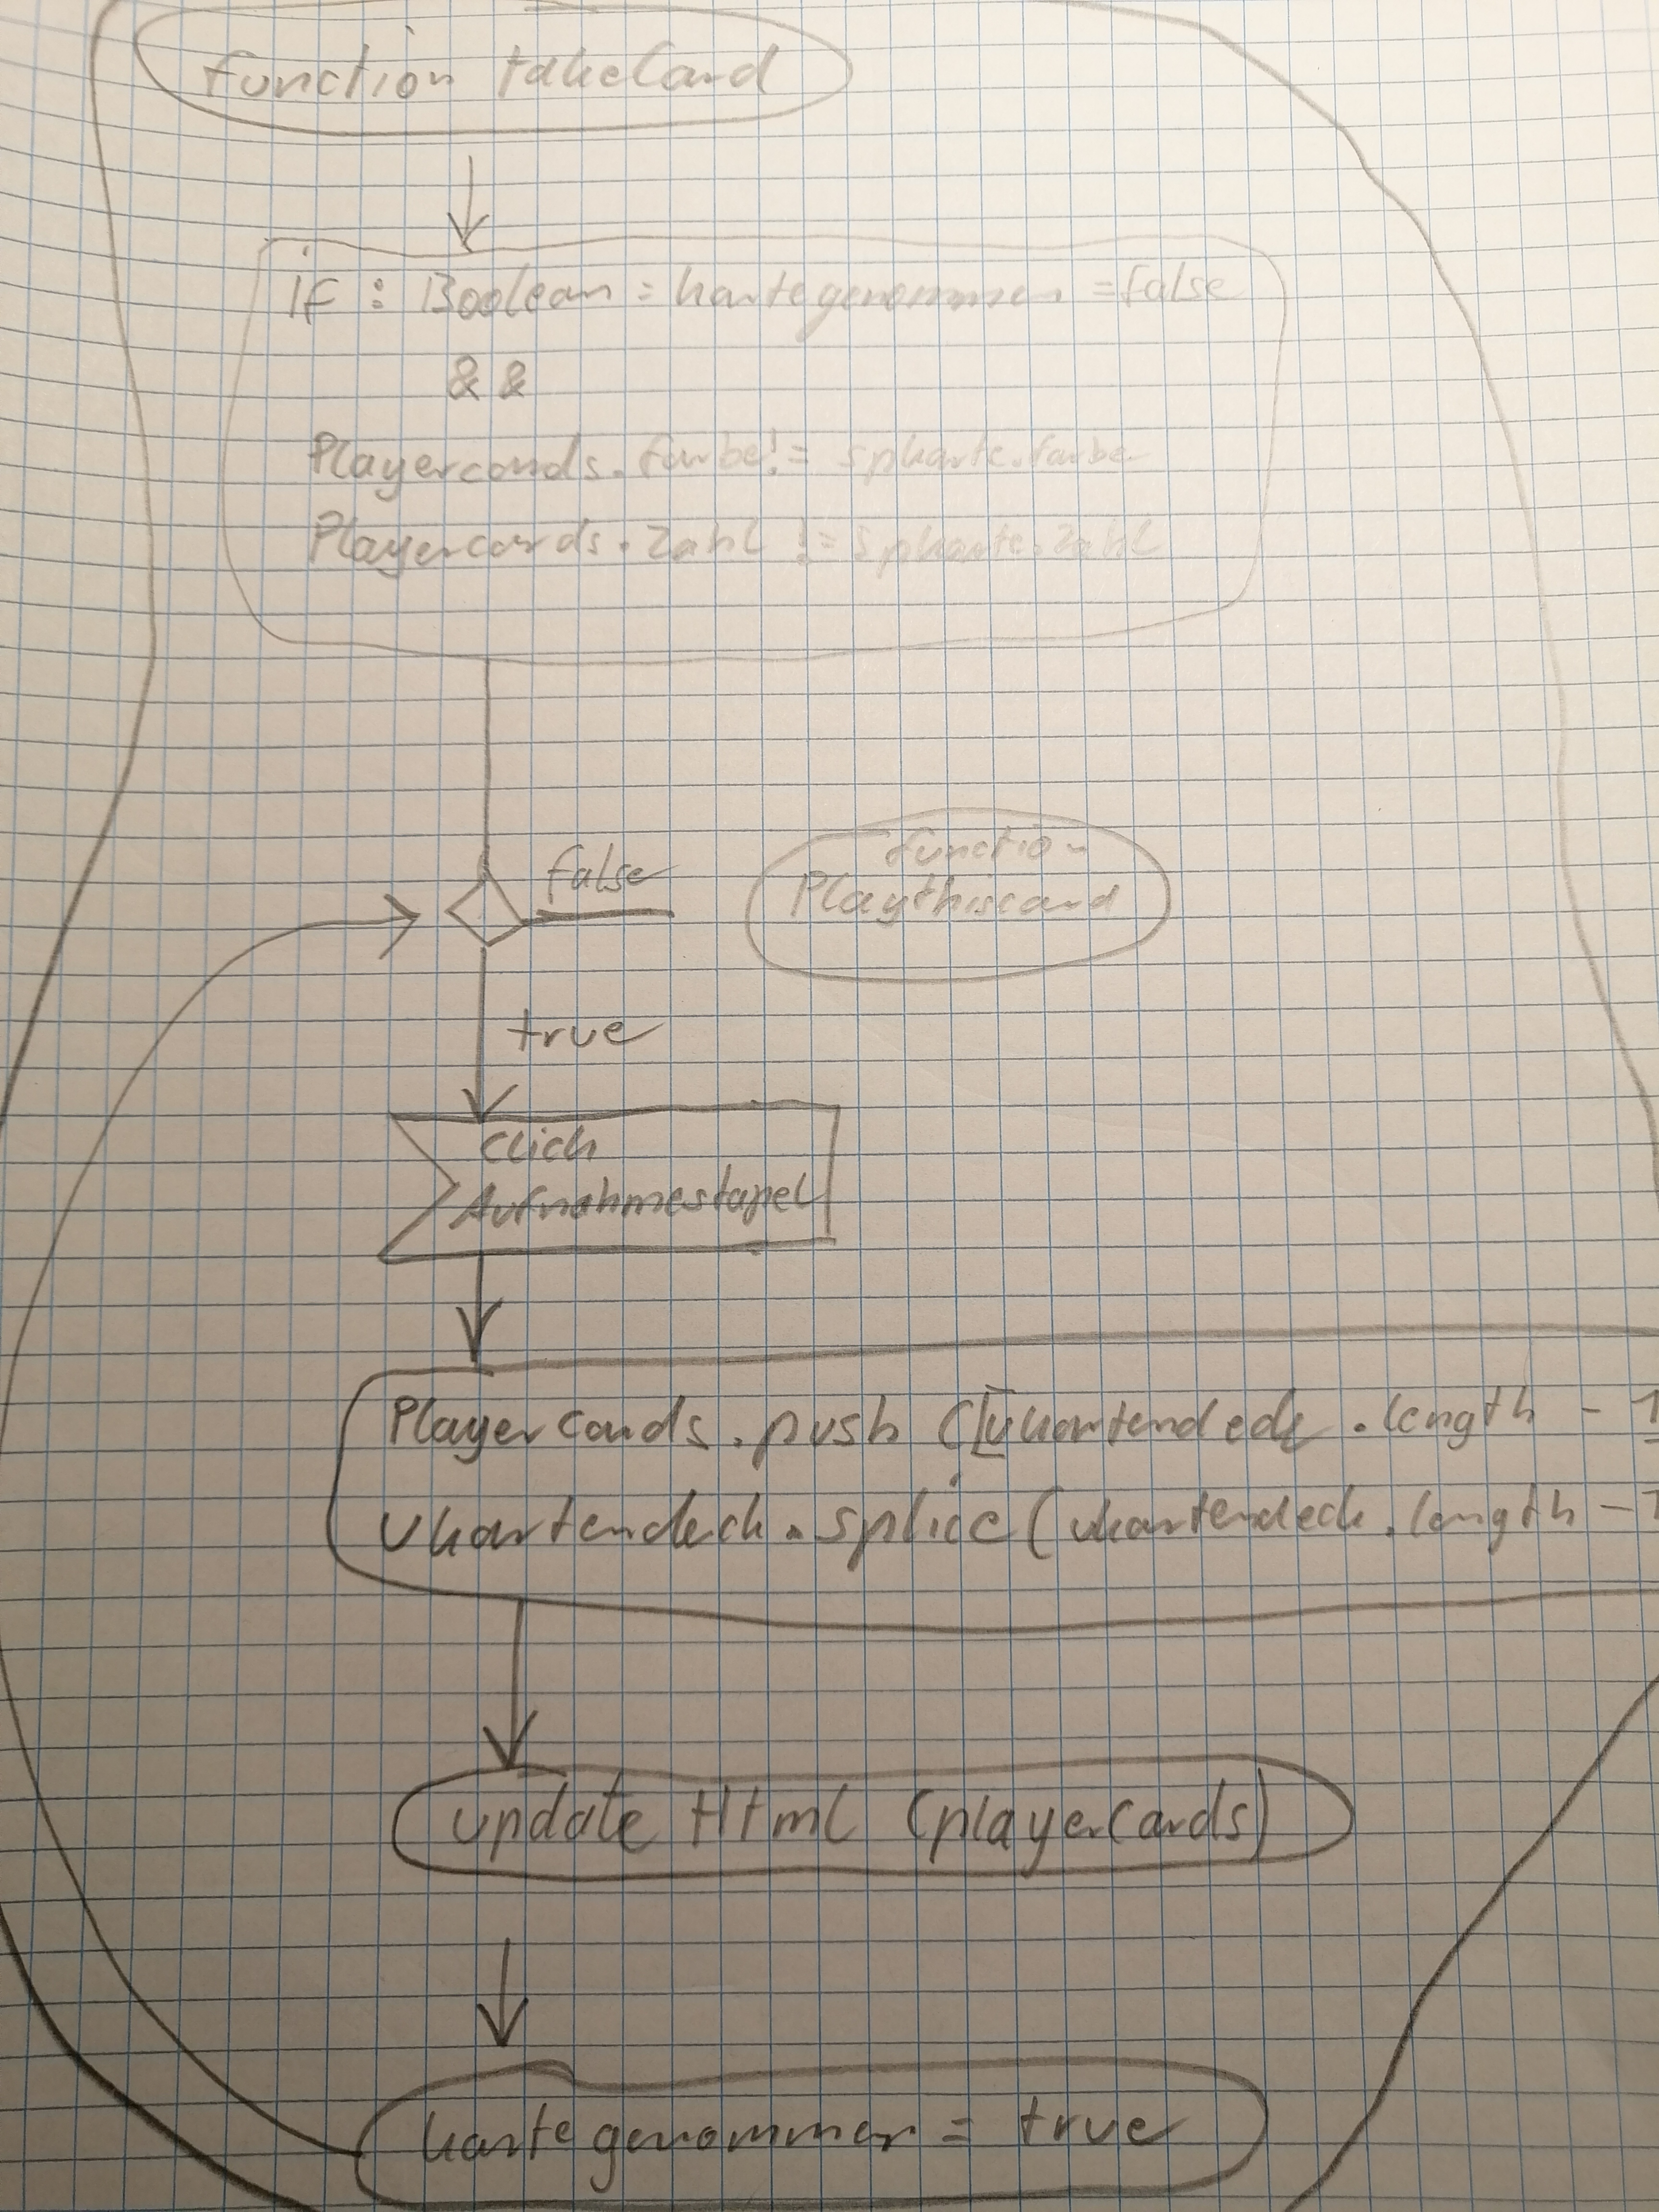 function takeCard
if : Boolean = kartegenommen = false
& &
Playercards.farbe != spkarte.farbe
Playercards.Zahl != spkarte.Zahl
false
function
Playthiscard
true
Click
Aufnahmestapel
Playercards.push ([ukartendeck.length - 1
Ukartendeck.splice (ukartendeck.length - 1
update Html (playerCards)
kartegenommen = true